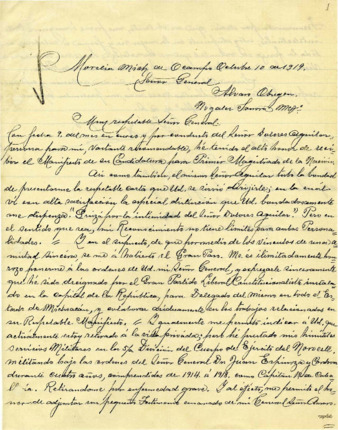 1
Morelia Mich. de Ocampo Octubre 10 de 1919.
Señor General
Alvaro Obregon
Nogales Sonora, Mex.
Muy respetable Señor General.
Con fecha 9. del mes en curso y por conducto del Señor Dolores Aguilar,
persona para mi, bastante recomendable, he tenido el alto honor de reci-
bir el Manifiesto de su Candidatura para Primer Magistrado de la Nación
Asi como tambien, el mismo Señor Aguilar tubo la bondad
de presentarme la respetable carta que Ud. se sirvió dirigirle; en la cual
vi con alta satisfacción la especial distinción que Ud. bondadosamente
me dispensa por la intimidad del Señor Dolores Aguilar. Pero en
el sentido que sea, mi Reconocimiento no tiene limite para ambas Persona-
lidades. En el supuesto, de que por medio de los vinculos de una a-
mistad sincera, se me
ponerme a las ordenes de Ud. mi Señor General, y agregarle sinceramente
que hé sido designado por el Gran Partido Liberal Constitucionalista instala-
do en la Capital de la República, para Delegado del mismo en todo el Es-
tado de Michoacán, a colaborar en los trabajos relacionados
en su Respetable Manifiesto. Igualmente me permito indicar a Ud. que
actualmente estoy retirado a la vida privada; pues he prestado mis humildes
servicios Militares en la Division del Cuerpo de Ejercito del Noroeste,
militando bajo las ordenes del Señor General Don Juan Espinosa y Cordova
durante cuatro años, comprendidos de 1914 a 1918, como Capitan de Caba-
lleria. Retirandome por enfermedad grave. Y al efecto, me permito el ho-
nor de adjuntar en pequeño Telegrama emanado de mi General Señor Amaro.